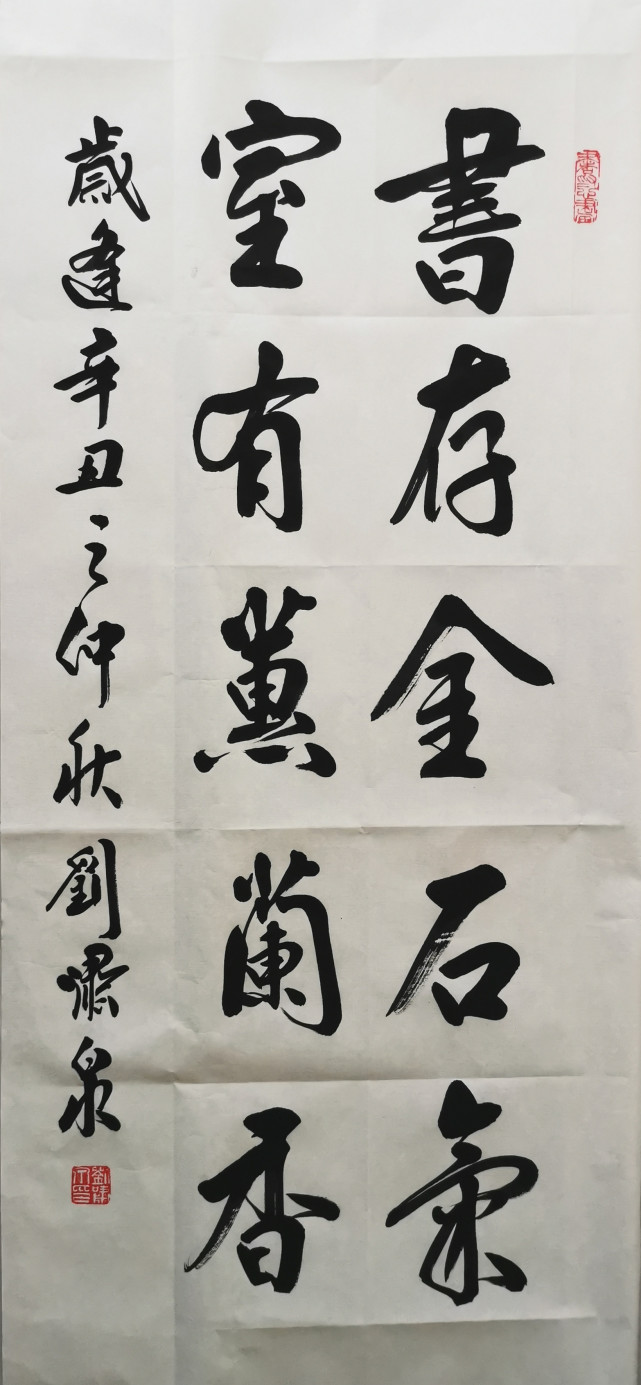 書存金石氣
室有蕙蘭香
歲逢辛丑之仲秋劉嘯泉